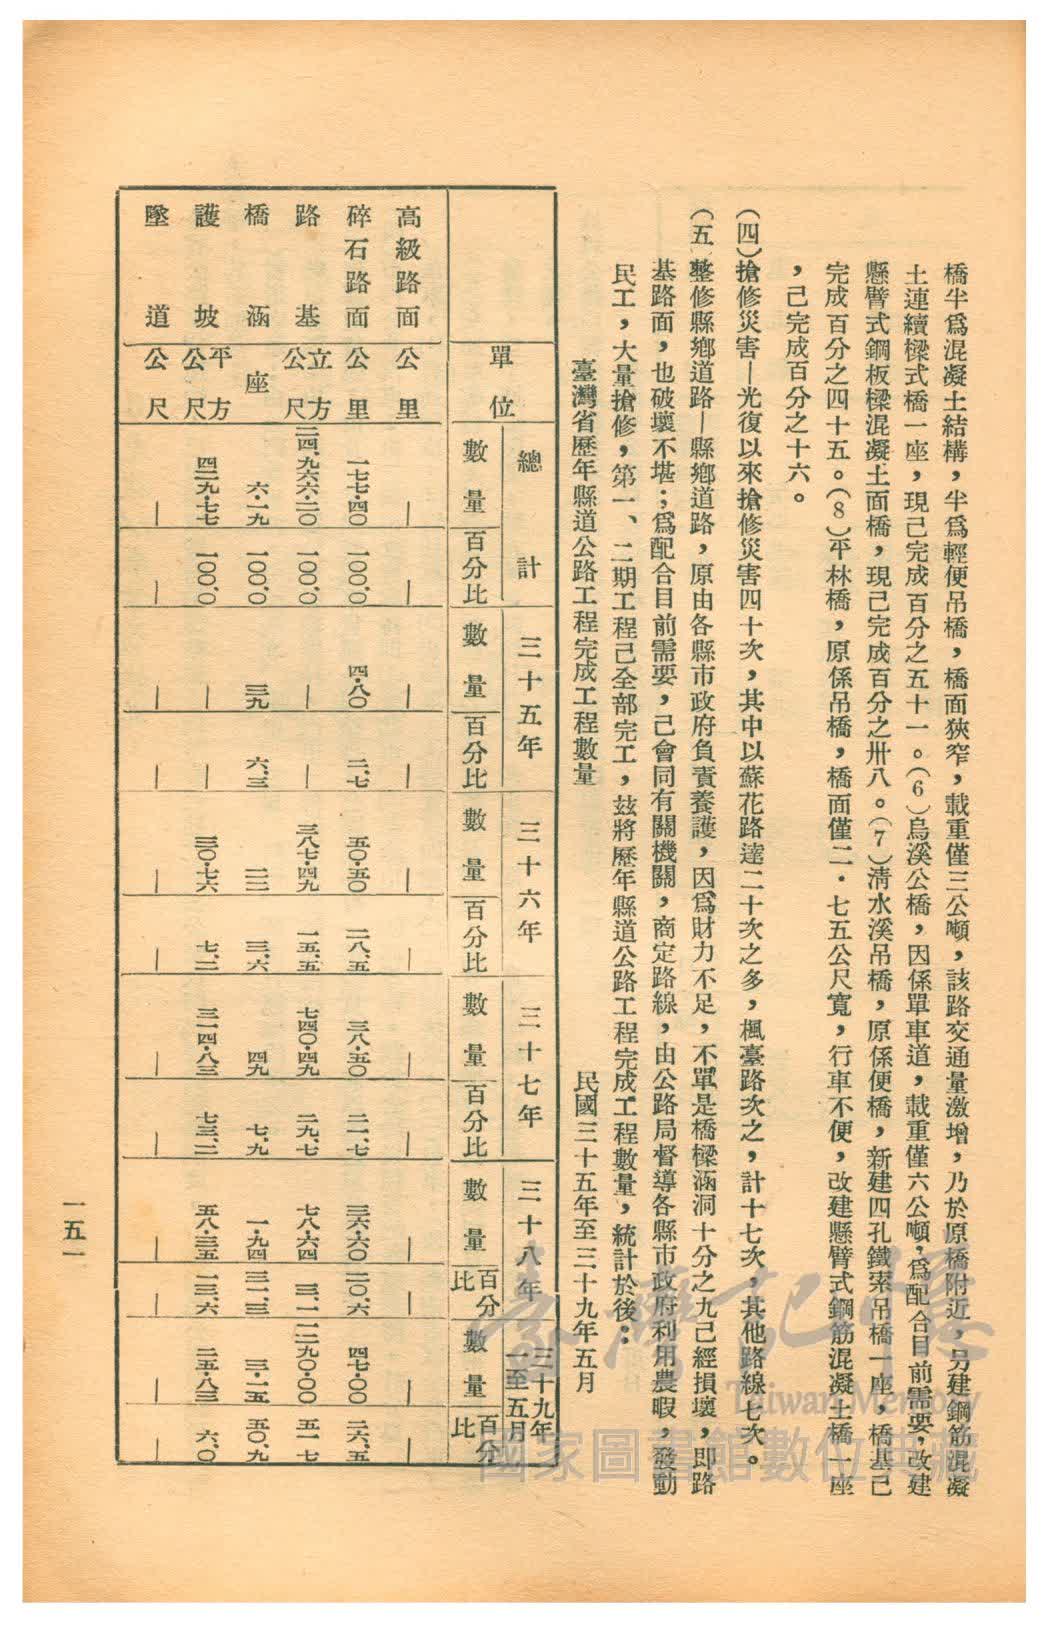 橋半爲混凝土結構，半爲輕便吊橋，橋面狹窄，載重僅三公噸，該路交通量激增，乃於原橋附近，另建鋼筋混凝
土連續樑式橋一座，現己完成百分之五十一。（6）烏溪公橋，因係單車道，載重僅六公噸，爲配合目前需要，改建
懸臂式鋼板樑混凝土面橋，現己完成百分之卅八。（7）淸水溪吊橋，原係便橋，新建四孔鐵索吊橋一座，橋基已
完成百分之四十五。（8）平林橋，原係吊橋，橋面僅二．七五公尺寬，行車不便，改建懸臂式鋼筋混凝土橋一座
，己完成百分之十六。
（四）搶修災害—光復以來搶修災害四十次，其中以蘇花路達二十次之多，楓臺路次之，計十七次，其他路線七次。
（五）整修縣鄕道路—縣鄕道路，原由各縣市政府負責養護，因爲財力不足，不單是橋樑涵洞十分之九己經損壞，即路
基路面，也破壞不堪；爲配合目前需要，己會同有關機關，商定路線，由公路局督導各縣市政府利用農暇，發動
民工，大量搶修，第一、二期工程己全部完工，玆將歷年縣道公路工程完成工程數量，統計於後：
臺灣省歷年縣道公路工程完成工程數量
民國三十五年至三十九年五月
單位 總計 三十五年 三十六年 三十七年 三十八年 三十九年一至五月
數量 百分比 數量 百分比 數量 百分比 數量 百分比 數量 百分比 數量 百分比
高級路面 公里 — — — — — — — — — — — —
碎石路面 公里 一七七・四〇 一〇〇.〇 四・八〇 二.七 五〇・五〇 二八.五 三八・五〇 二一.七 三六・六〇 二〇.六 四七・〇〇 二六.五
路基 立方公尺 二四、九六六・二〇 一〇〇.〇 — — 三八七・四九 一五.五 七四〇・四九 二九.七 七八・六四 三.一 一二九〇・〇〇 五一.七
橋涵 座 六・一九 一〇〇.〇 三九 六.三 二二 三.六 四九 七.九 一・九四 三一.三 三・一五 五〇.九
護坡 平方公尺 四二九・七七 一〇〇.〇 — — 三〇・七六 七.二 三一四・八三 七三.二 五八・三五 一三.六 二五・八三 六.〇
墜道 公尺 — — — — — — — — — — — —
一五一
臺灣記憶
Taiwan Memory
國家圖書館數位典藏